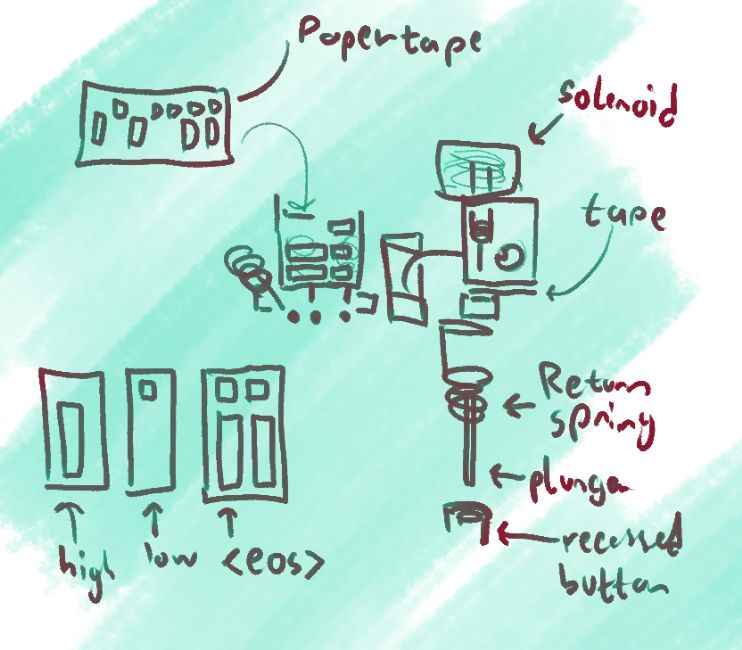 Papertape
solenoid
tape
Return
spring
plunger
recessed
button
high
low
<eos>